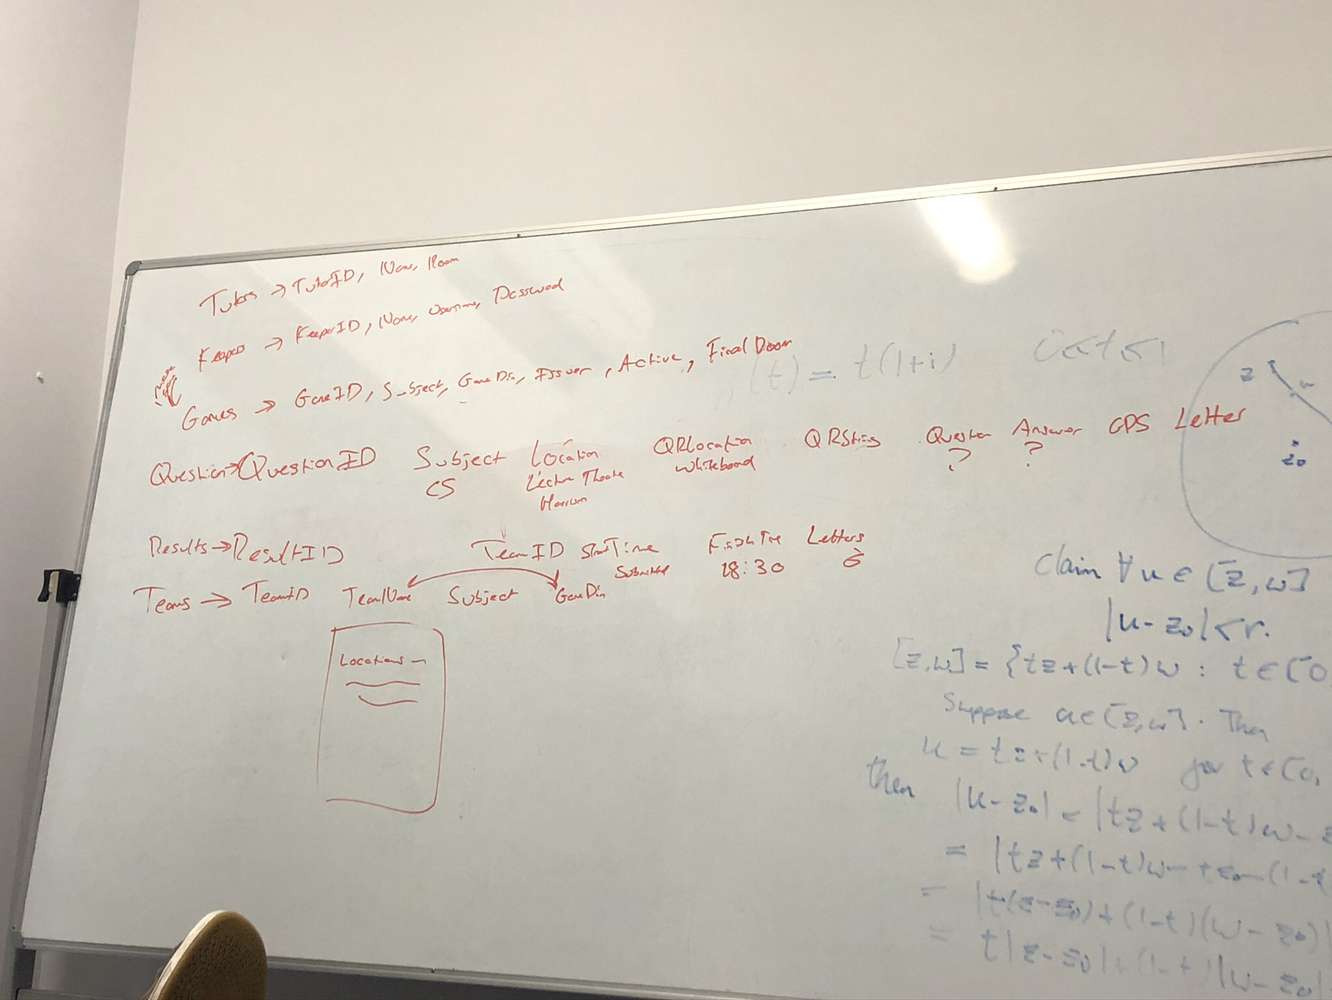 Tutors → TutorID, Name, Room
Keepers → KeeperID, Name, Username, Password
Games → GameID, Subject, GamePin, Issuer, Active, Final Door
(t) = t(1+i) 0≤t≤1
Question → QuestionID Subject Location QRLocation QRString Question Answer GPS Letter
CS Lecture Theatre Whiteboard ? ?
Harrison
z
z₀
Results → ResultID TeamID StartTime FinishTime Letters
Submitted 18:30 6
Teams → TeamID TeamName Subject GamePin
Locations
Claim ∀u∈[z,w]
|u-z₀|<r.
[z,w] = {tz+(1-t)w : t∈[0,
Suppose u∈[z,w]. Then
u = tz+(1-t)w for t∈[0,
then |u-z₀| = |tz+(1-t)w-z
= |tz+(1-t)w-tz₀-(1-t
= |t(z-z₀)+(1-t)(w-z₀)|
= t|z-z₀|+(1-t)|w-z₀|